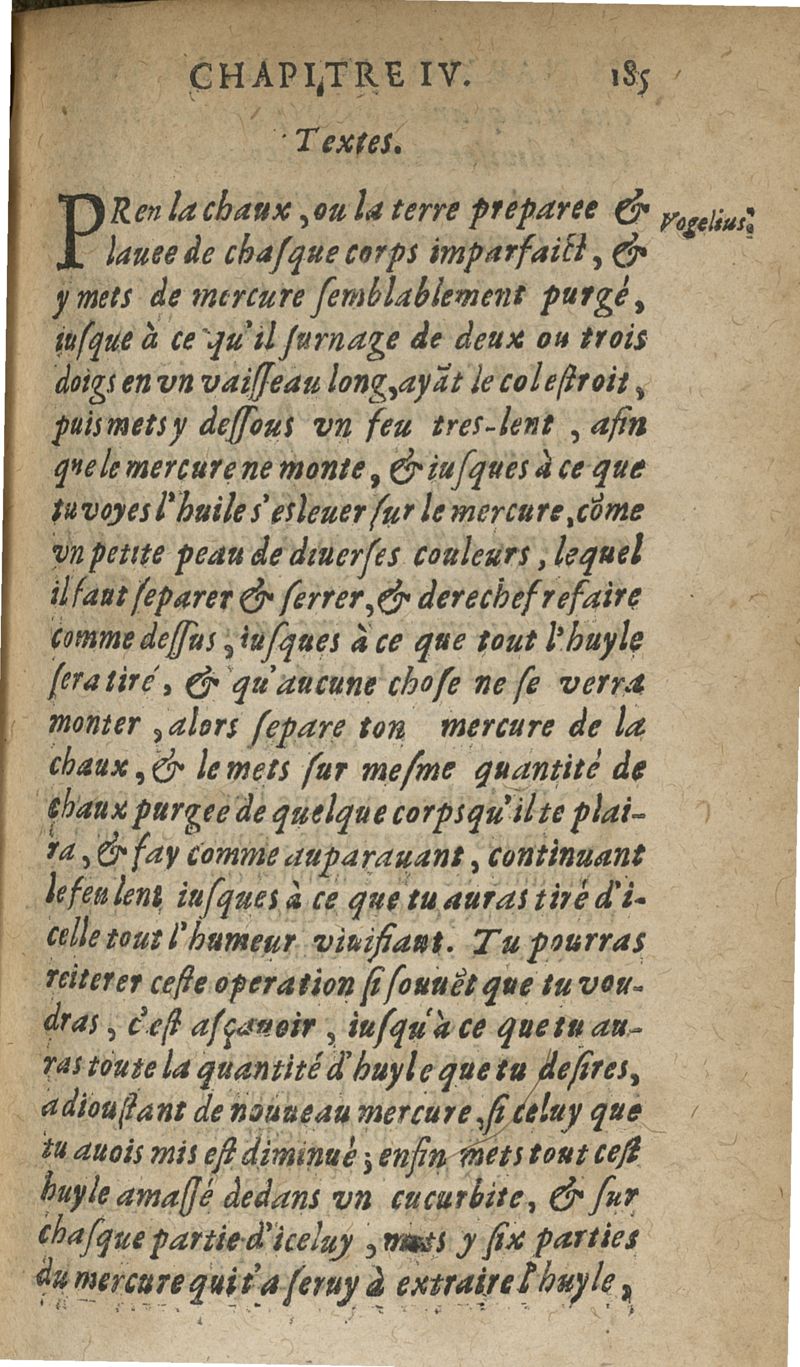 CHAPITRE IV. 185
Textes.
PRen la chaux, ou la terre preparee & Vogelius.
lauee de chaſque corps imparfaict, &
y mets de mercure ſemblablement purgé,
iuſque à ce qu'il ſurnage de deux ou trois
doigs en vn vaiſſeau long, ayãt le col eſtroit,
puis mets y deſſous vn feu tres-lent, afin
que le mercure ne monte, & iuſques à ce que
tu voyes l'huile s'esleuer ſur le mercure, cõme
vn petite peau de diuerſes couleurs, lequel
il faut ſeparer & ſerrer, & derechef refaire
comme deſſus, iuſques à ce que tout l'huyle
ſera tiré, & qu'aucune choſe ne ſe verra
monter, alors ſepare ton mercure de la
chaux, & le mets ſur meſme quantité de
chaux purgee de quelque corps qu'il te plai-
ra, & fay comme auparauant, continuant
le feu lent iuſques à ce que tu auras tiré d'i-
celle tout l'humeur viuifiant. Tu pourras
reiterer ceſte operation ſi ſouuẽt que tu vou-
dras, c'eſt aſçauoir, iuſqu'à ce que tu au-
ras toute la quantité d'huyle que tu deſires,
adiouſtant de nouueau mercure, ſi celuy que
tu auois mis eſt diminué; enfin mets tout ceſt
huyle amaſſé dedans vn cucurbite, & ſur
chaſque partie d'iceluy, mets y ſix parties
du mercure qui t'a ſeruy à extraire l'huyle,